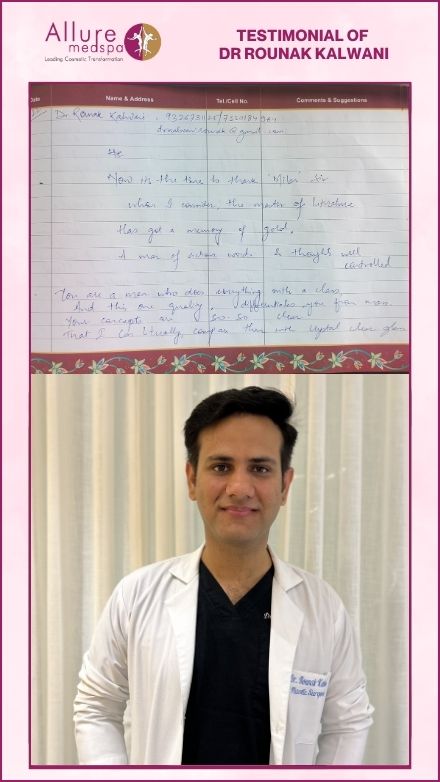 Allure
medspa
Leading Cosmetic Transformation
TESTIMONIAL OF
DR ROUNAK KALWANI
Date Name & Address Tel./Cell No. Comments & Suggestions
Dr Rounak Kalwani
Now its the time to thank 'Milan' Sir
whom I consider, the master of literature
Has got a memory of gold,
A man of actions words & thoughts well
controlled
You are a man who does everything with a class
And this one quality, differentiates you from mass
Your concepts are so-so clear
That I can literally compare them with crystal clear glass
Dr. Rounak
Plastic Surgeon